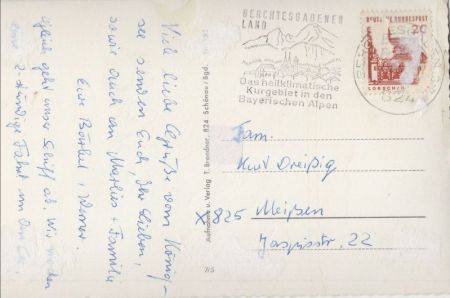 Viele liebe Grüße vom König-
see senden Euch, Ihr Lieben,
sowie auch an Marlies + Familie
Eure Bärbel + Werner.
geht unser Schiff ab. Wir machen
eine 2-stündige Fahrt um den See.
BERCHTESGADENER
LAND
Das heilklimatische
Kurgebiet in den
Bayerischen Alpen
DEUTSCHE BUNDESPOST
20
LORSCH/H
824
Aufnahme u. Verlag T. Brandner, 824 Schönau / Bgd.
7/5
Fam.
Kurt Dreißig
X 825 Meißen
Jaspisstr. 22